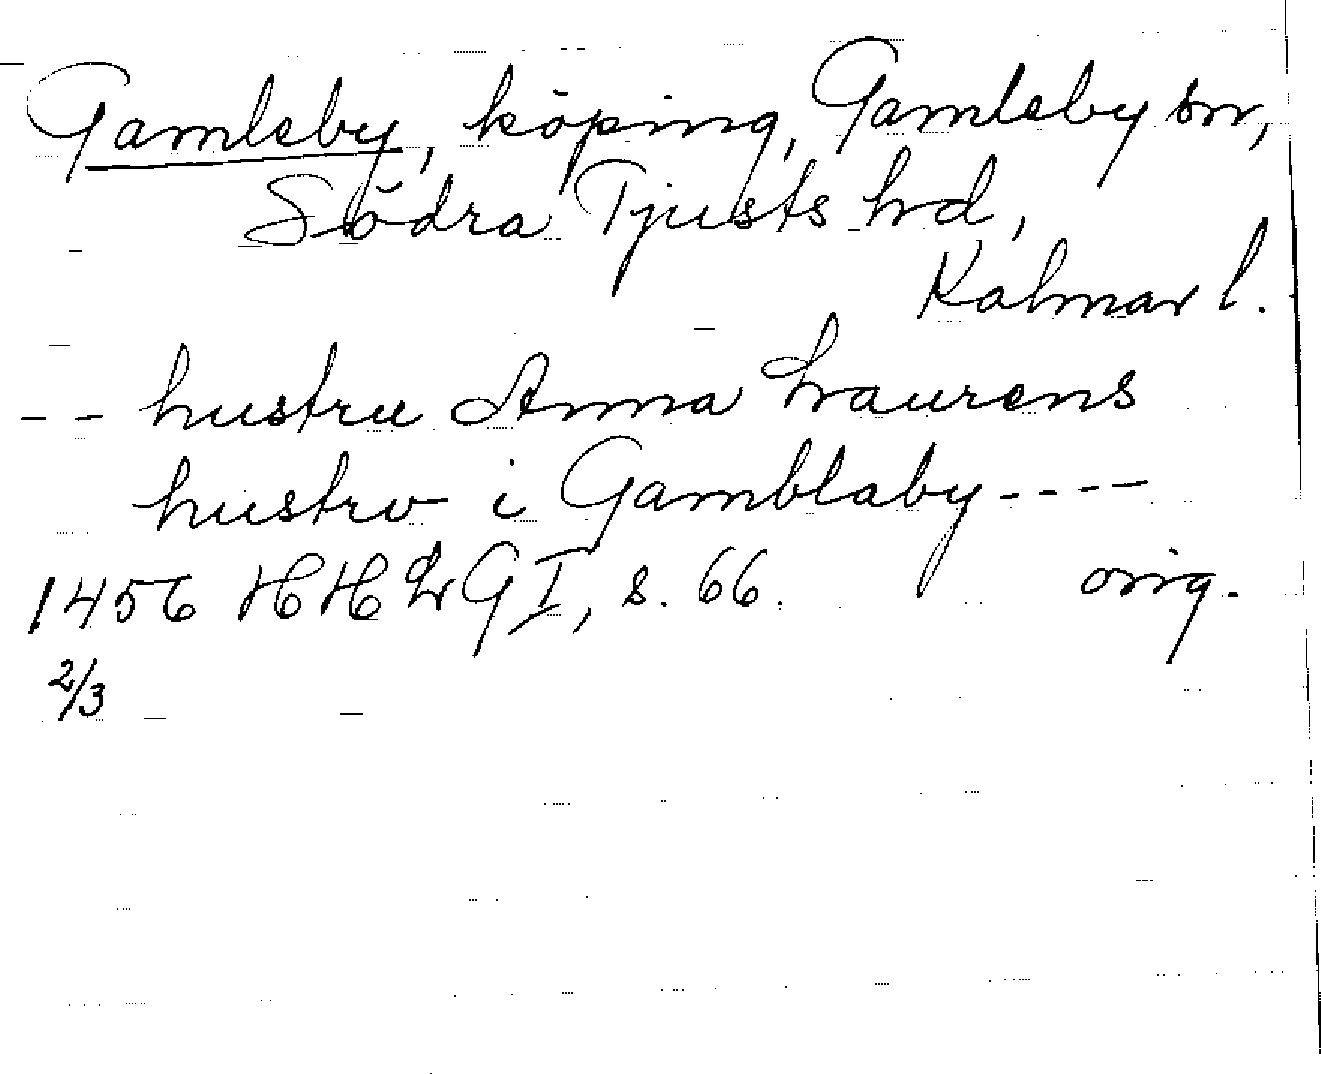 Gamleby, köping, Gamleby sn,
Södra Tjusts hd,
Kalmar l.
-- hustru Anna Laurens
hustrv i Gamblaby ----
1456 HHLG I, s. 66. orig.
2/3